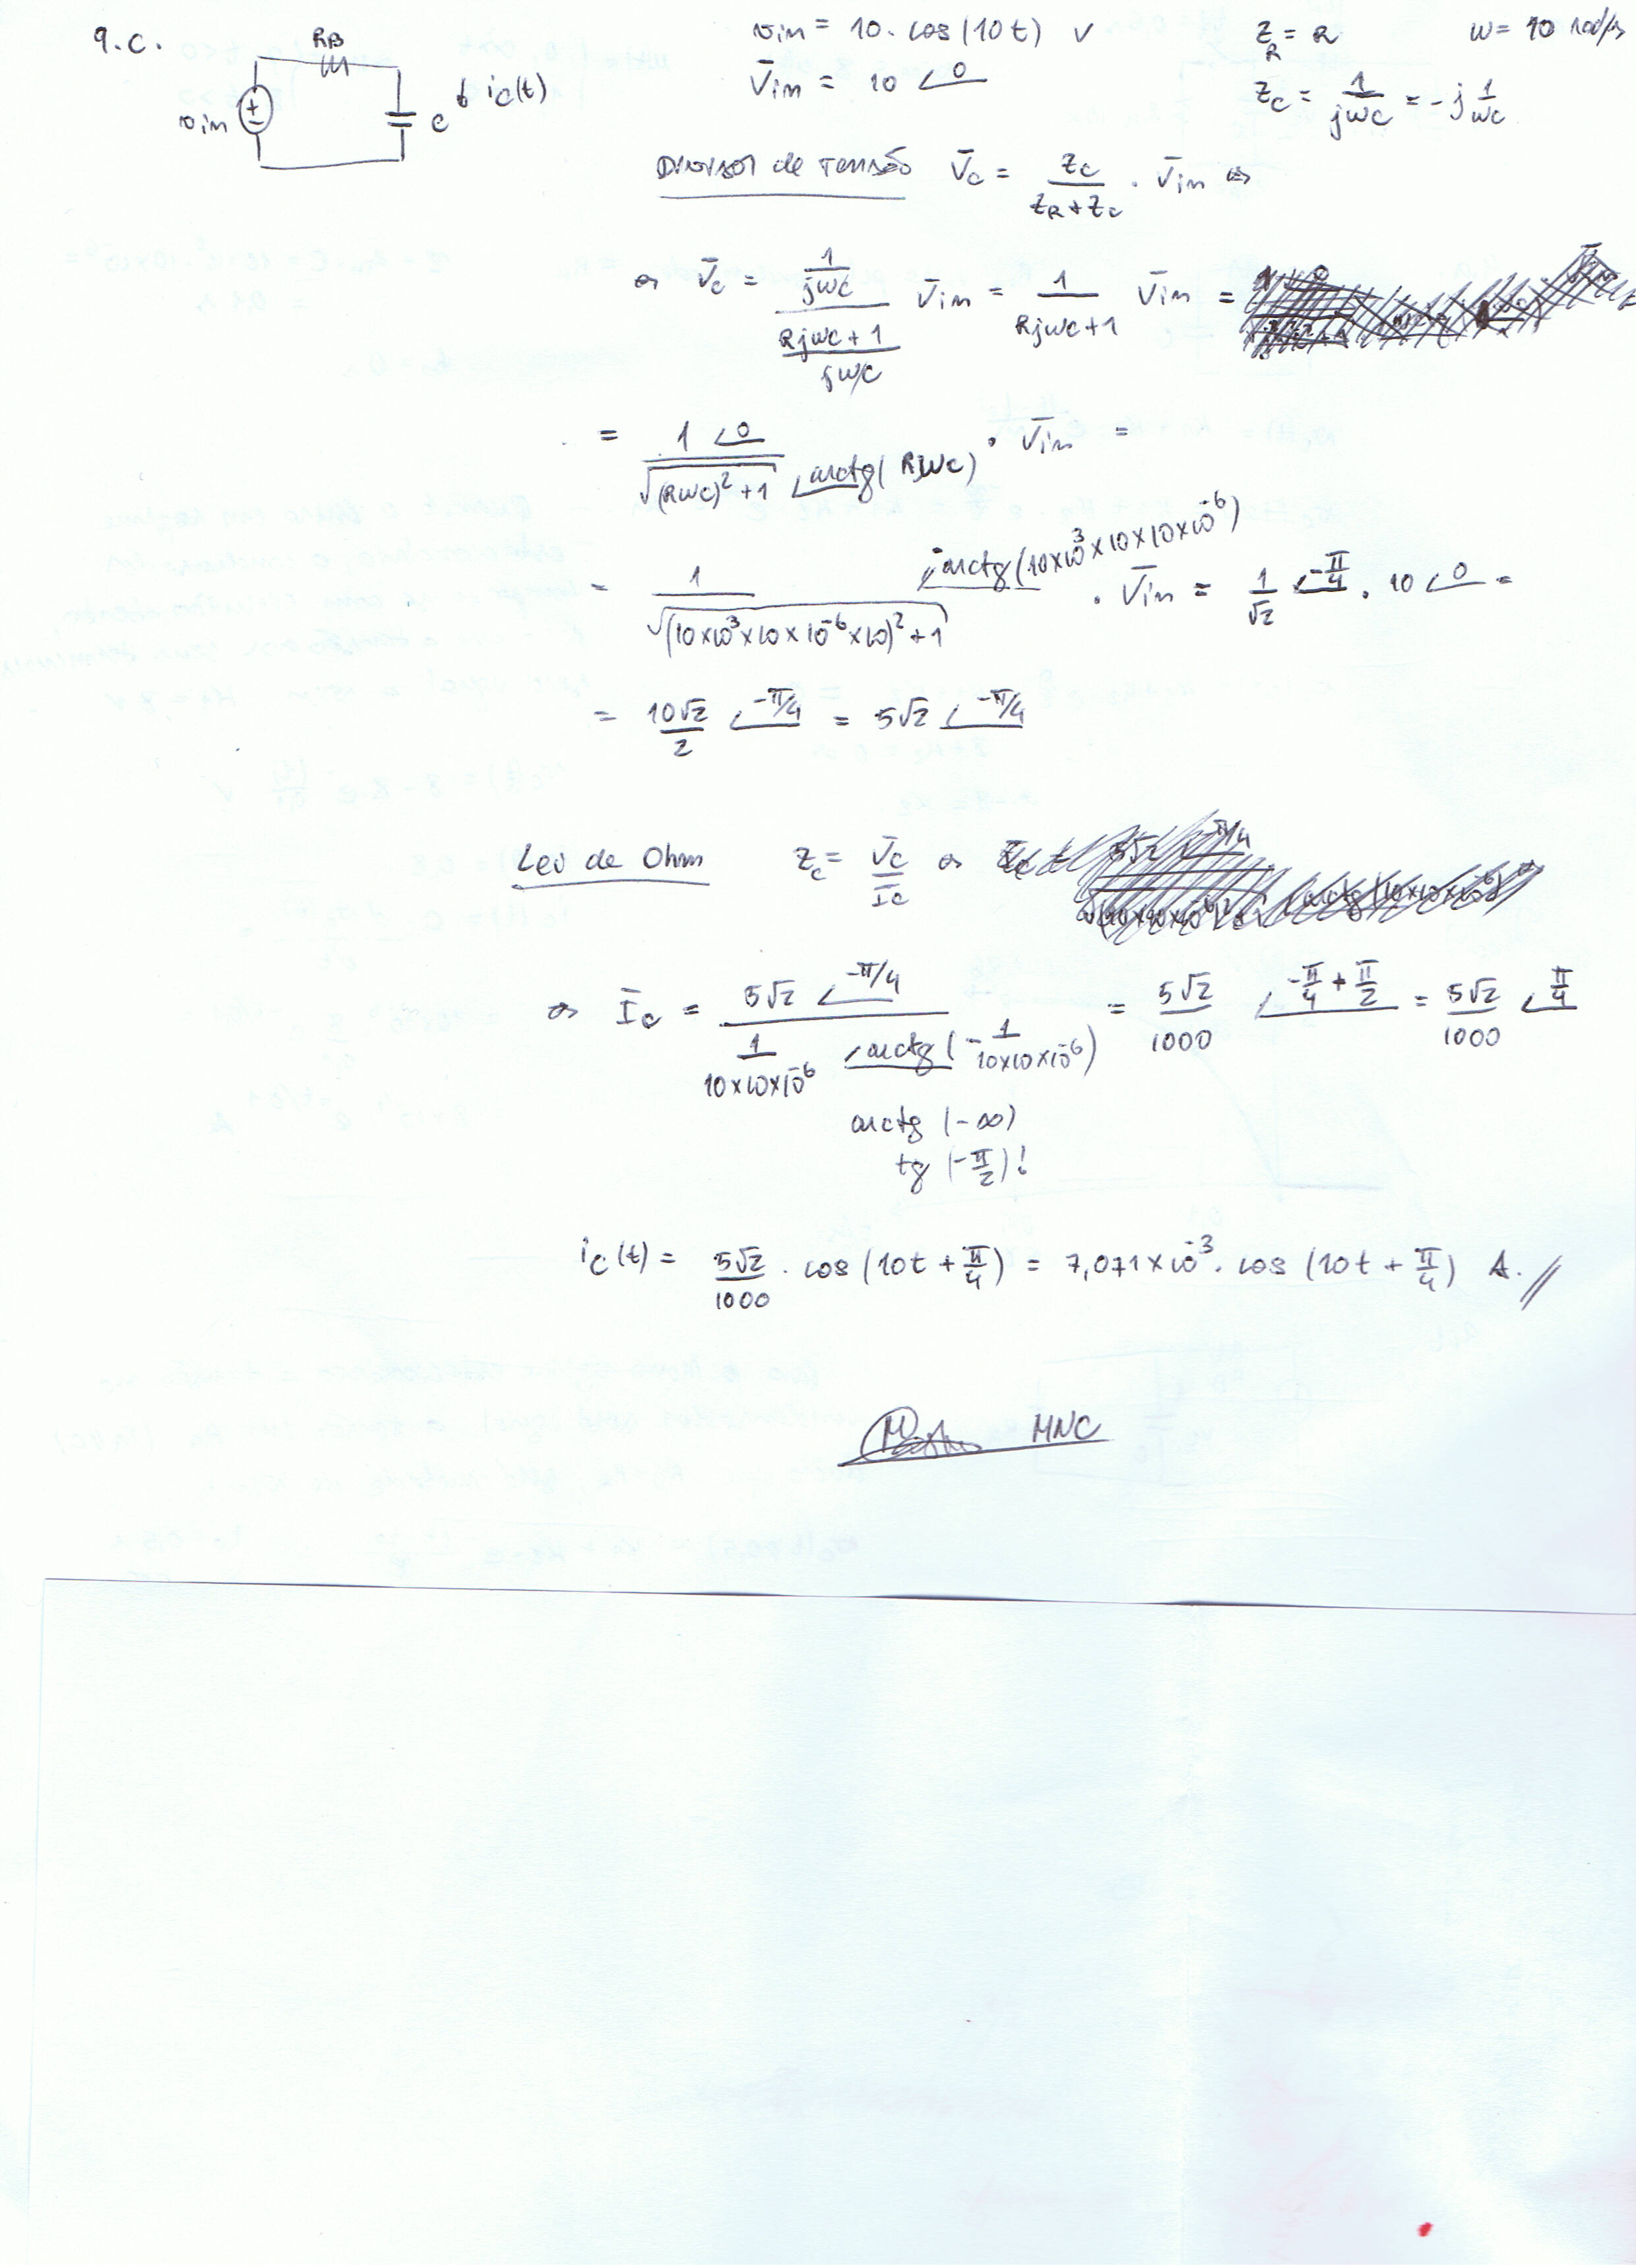 9.C.
RB
vin
C
ic(t)
vin = 10. cos(10t) V
V̄in = 10 ∠0
ZR = R
ω = 10 rad/s
ZC = 1/jωC = -j 1/ωC
Divisor de Tensão V̄c = Zc/(ZR+Zc) . V̄in ⇔
⇔ V̄c = (1/jωC)/((RjωC+1)/jωC) V̄in = 1/(RjωC+1) V̄in =
= 1 ∠0 / √((RωC)²+1) ∠arctg(RωC) . V̄in =
= 1/√((10x10³x10x10⁻⁶x10)²+1) ∠-arctg(10x10³x10x10x10⁻⁶) . V̄in = 1/√2 ∠-π/4 . 10 ∠0 =
= 10√2/2 ∠-π/4 = 5√2 ∠-π/4
Lei de Ohm Zc = V̄c/Īc ⇔
⇔ Īc = 5√2 ∠-π/4 / (1/(10x10x10⁻⁶) ∠arctg(-1/(10x10x10⁻⁶))) = 5√2/1000 ∠-π/4+π/2 = 5√2/1000 ∠π/4
arctg (-∞)
tg (-π/2)!
ic(t) = 5√2/1000 . cos(10t + π/4) = 7,071x10⁻³. cos (10t + π/4) A.//
MNC